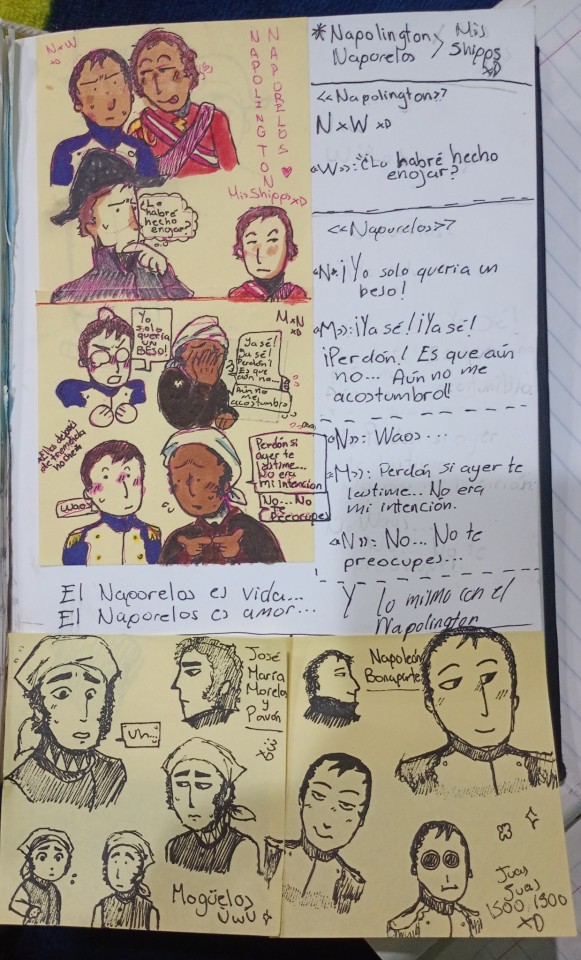 N×W
xD
NAPOLINGTON
NAPORELOS ♥
Mis Shipps xD
¿Lo
habré
hecho
enojar?
Yo
solo
quería
un
BESO!
M×N
xD
¡Ya sé!
¡Ya sé!
Perdón!
Es que
aún no...
Aún no
me
acostumbro
*El día después
de tremenda
noche*
Waos
Perdón si
ayer te
lastime...
No era
mi intención
No... No
te
preocupes
*Napolington
Naporelos
> Mis
Shipps
xD
<<Napolington>>
N×W xD
<<W>>: ¿Lo habré hecho
enojar?
<<Naporelos>>
<<N>>: ¡Yo solo quería un
beso!
<<M>>: ¡Ya sé! ¡Ya sé!
¡Perdón! Es que aún
no... Aún no me
acostumbro!!
<<N>>: Waos...
<<M>>: Perdón si ayer te
lastime... No era
mi intención.
<<N>>: No... No te
preocupes...
El Naporelos es vida...
El Naporelos es amor...
Y lo mismo con el
Napolington
José
María
Morelos
y
Pavón
Un...
Mogüelos
UwU
Napoleón
Bonaparte
Juas
Juas
1500 1500
XD